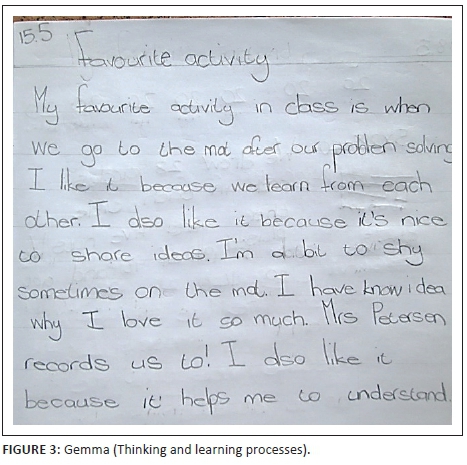 15.5
Favourite activity
My favourite activity in class is when
we go to the mat after our problen solving
I like it because we learn from each
other. I also like it because it's nice
to share ideas. I'm a bit to shy
sometimes on the mat. I have know idea
why I love it so much. Mrs Petersen
records us to! I also like it
because it helps me to understand.
FIGURE 3: Gemma (Thinking and learning processes).